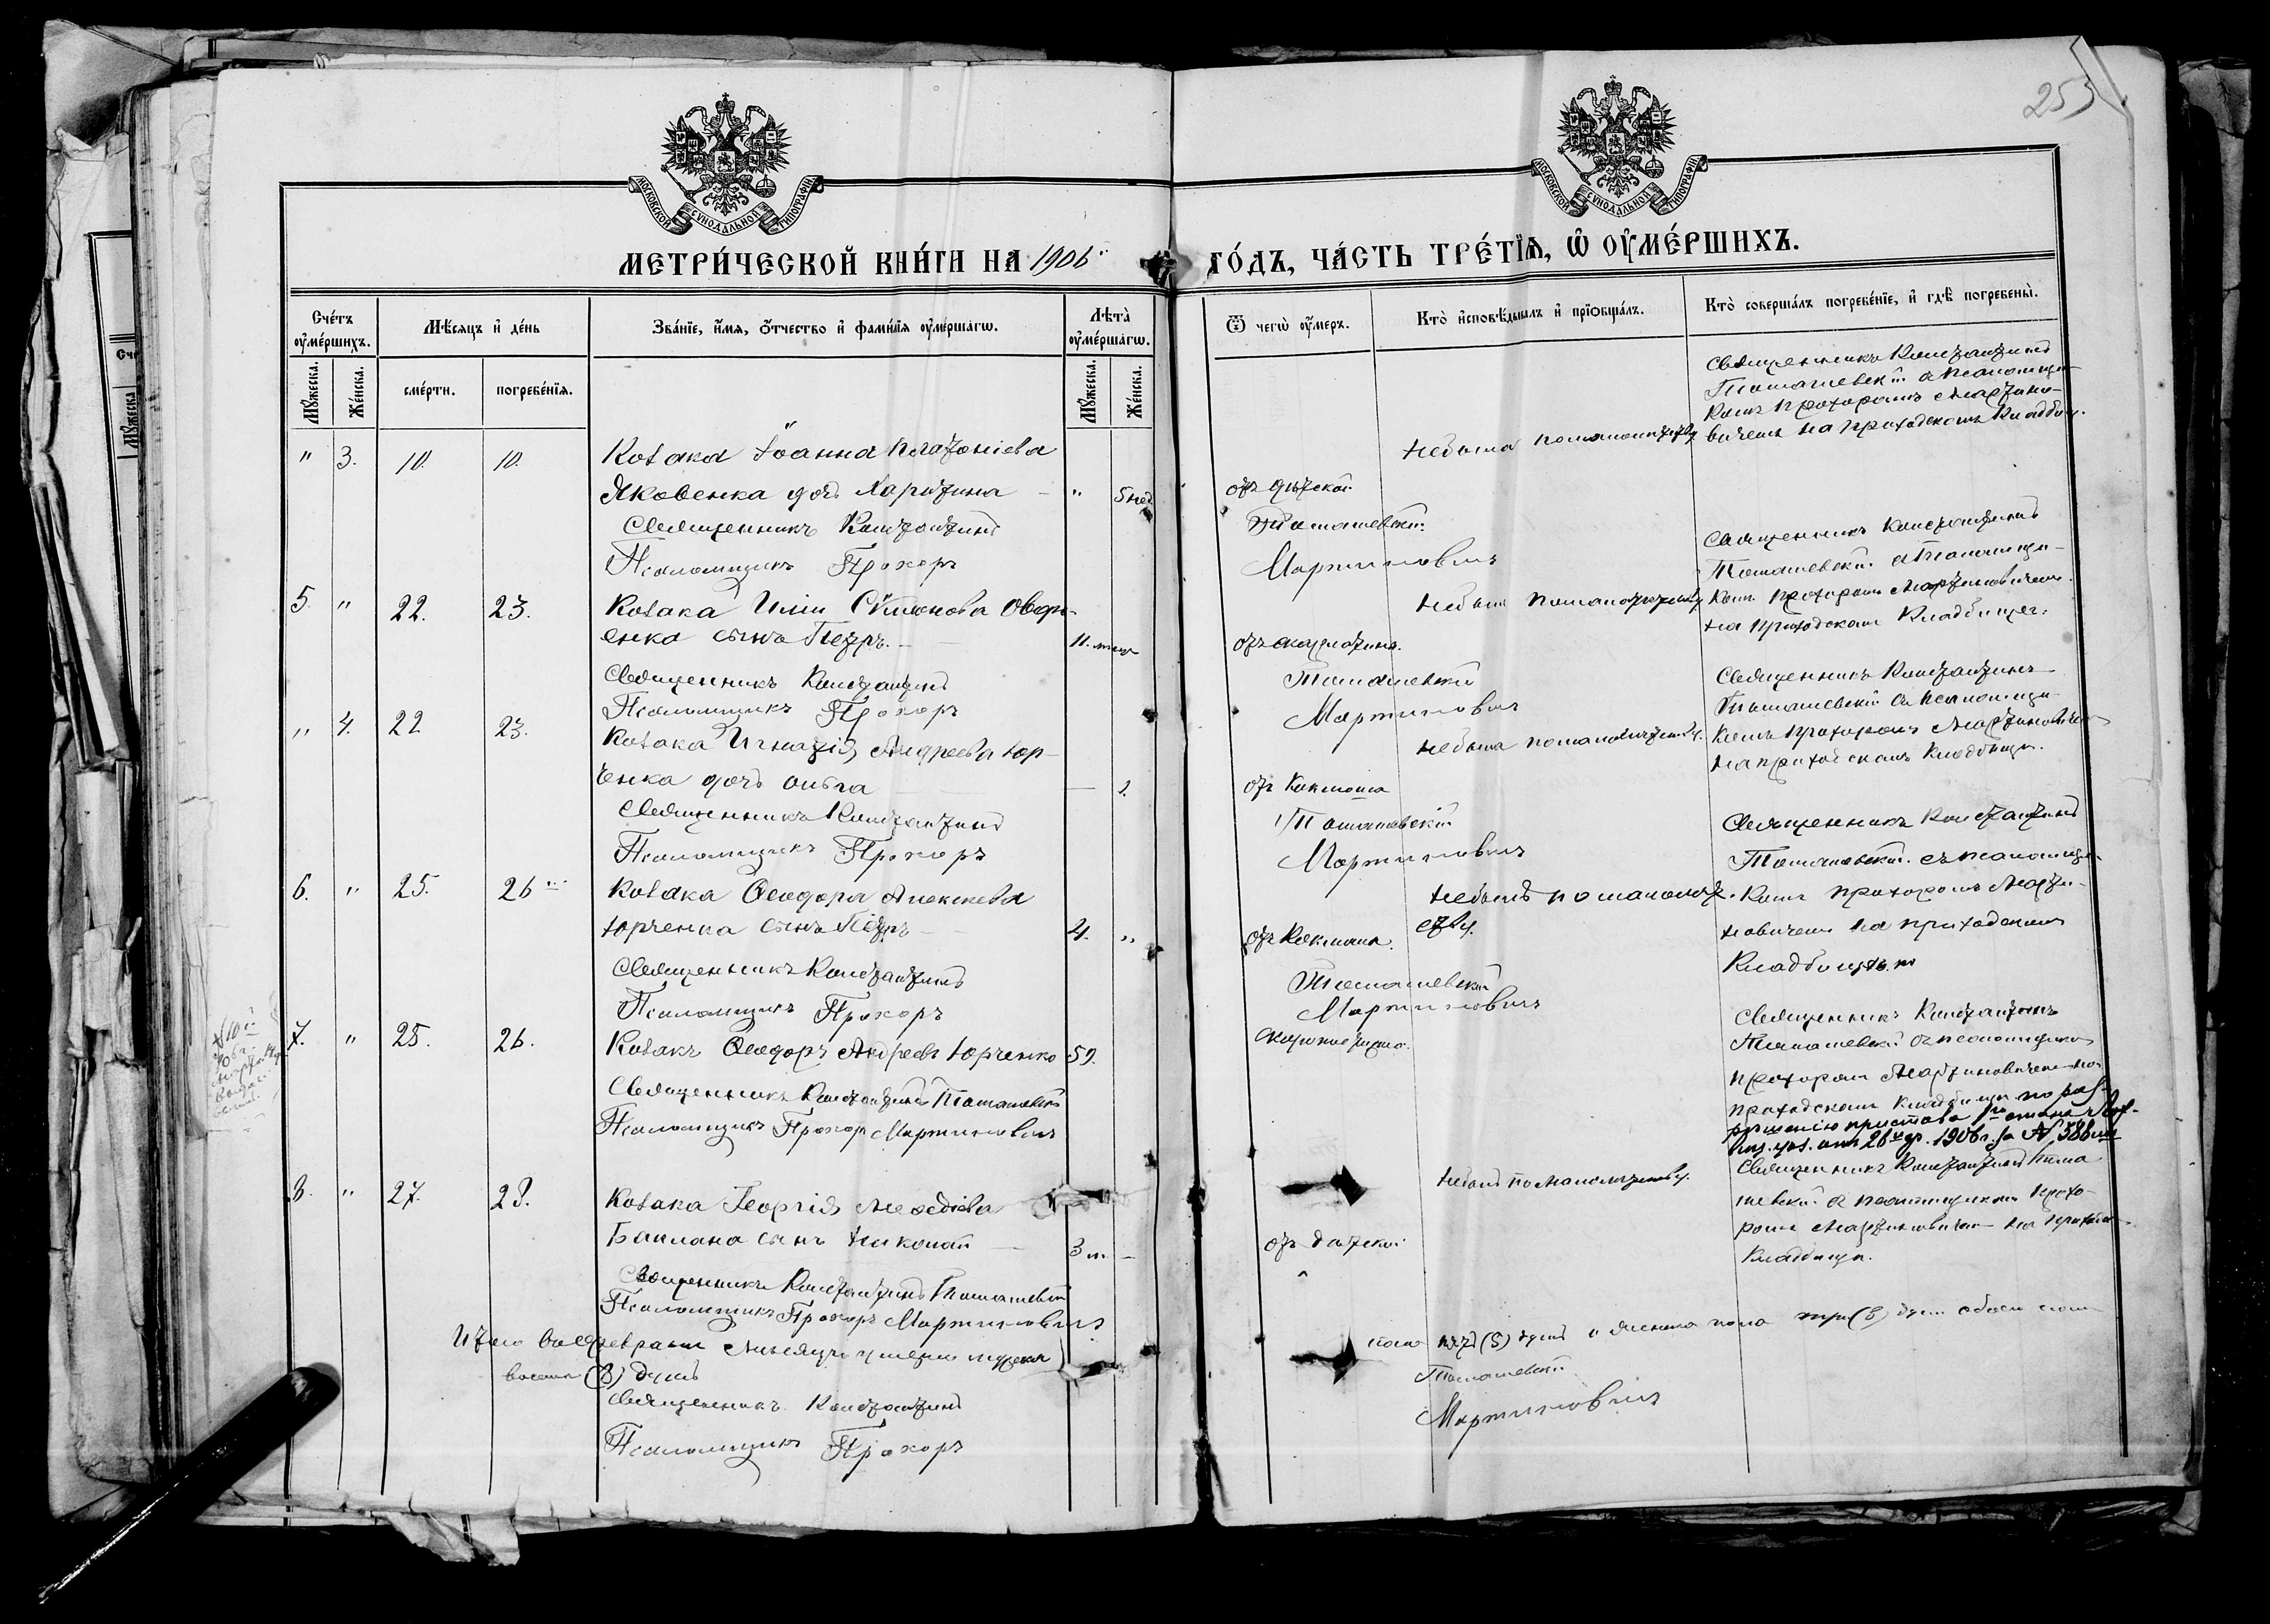 253
МОСКОВСКОЙ СѴНОДАЛЬНОЙ ТИПОГРАФІИ
МОСКОВСКОЙ СѴНОДАЛЬНОЙ ТИПОГРАФІИ
МЕТРИ́ЧЕСКОЙ КНИ́ГИ НА 1906
ГО́ДЪ, ЧА́СТЬ ТРЕ́ТІѦ, Ѡ ОУ҆МЕ́РШИХЪ.
Сче́тъ оу҆ме́ршихъ.
Мѣ́сяцъ и҆ де́нь
Зва́нїе, и҆́мѧ, ѻ҆́тчество и҆ фами́лїѧ оу҆ме́ршагѡ.
Лѣта̀ оу҆ме́ршагѡ.
Мꙋ́жеска.
Же́нска.
сме́рти.
погребе́нїѧ.
Мꙋ́жеска.
Же́нска.
Ѿ чегѡ̀ оу҆́меръ.
Кто̀ и҆сповѣ́дывалъ и҆ прїѡбща́лъ.
Кто̀ соверша́лъ погребе́нїе, и҆ гдѣ̀ погребены̀.
" 3. 10. 10. Козака Іоанна Платоніева
Яковенка дочь Харитина — " 5 нед
Священникъ Константинъ
Псаломщикъ Прохоръ
отъ дѣтской
Томашевскій
Мартиновичъ
Небыла по малолѣтству
Священникъ Константинъ
Томашевскій съ псаломщи-
комъ Прохоромъ Мартино-
вичемъ на приходскомъ кладбищ.
5. " 22. 23. Козака Иліи Сѵмеонова Овер-
енка сынъ Петръ. — 11. мес
Священникъ Константинъ
Псаломщикъ Прохоръ
отъ скарлатины.
Томашевскій
Мартиновичъ
Небылъ по малолѣтству
Священникъ Константинъ
Томашевскій съ псаломщи-
комъ Прохоромъ Мартиновичемъ
на приходскомъ кладбищѣ.
" 4. 22 23. Козака Игнатія Андреева Юр-
ченка дочь Ольга — 2.
Священникъ Константинъ
Псаломщикъ Прохоръ
отъ коклюша
Томашевскій
Мартиновичъ
Небыла по малолѣтству.
Священникъ Константинъ
Томашевскій съ псаломщи-
комъ Прохоромъ Мартиновичемъ
на приходскомъ кладбищѣ.
6. " 25. 26 Козака Ѳеодора Алексѣева
Юрченка сынъ Петръ — 4. "
Священникъ Константинъ
Псаломщикъ Прохоръ
отъ коклюша.
Томашевскій
Мартиновичъ
Небылъ по малолѣт.
ству.
Священникъ Константинъ
Томашевскій съ псаломщи-
комъ Прохоромъ Марти-
новичемъ на приходскомъ
кладбищѣ.
7. " 25. 26. Козакъ Ѳеодоръ Андреевъ Юрченко 59.
Священникъ Константинъ Томашевскій
Псаломщикъ Прохоръ Мартиновичъ
скоропостижно.
Священникъ Константинъ
Томашевскій съ псаломщикомъ
Прохоромъ Мартиновичемъ на
приходскомъ кладбищѣ по раз-
рѣшенію пристава 1го стана
уѣз. отъ 26 1906 г. за № 586
8. " 27. 28. Козака Георгія Меѳодіева
Баклана сынъ Николай — 3 м. —
Священникъ Константинъ Томашевскій
Псаломщикъ Прохоръ Мартиновичъ
отъ дѣтской
Небылъ по малолѣтству.
Священникъ Константинъ Тома
шевскій съ псаломщикомъ Прохо-
ромъ Мартиновичемъ на приходск.
кладбищѣ.
Итого въ февралѣ мѣсяцѣ умерло мужеска
пола пять (5) душъ и женска пола три (3) душ. обоего пола
восемь (8) душъ
Священникъ Константинъ
Томашевскій
Псаломщикъ Прохоръ
Мартиновичъ